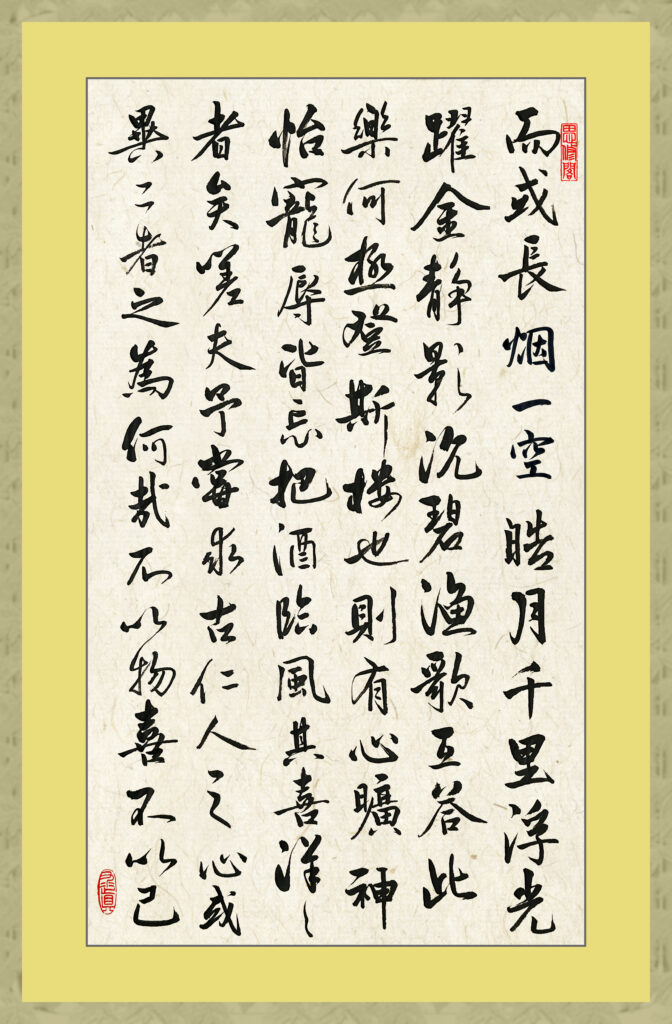 而或長烟一空皓月千里浮光
躍金静影沉碧漁歌互答此
樂何極登斯樓也則有心曠神
怡寵辱皆忘把酒臨風其喜洋〻
者矣嗟夫予嘗求古仁人之心或
異二者之為何哉不以物喜不以己